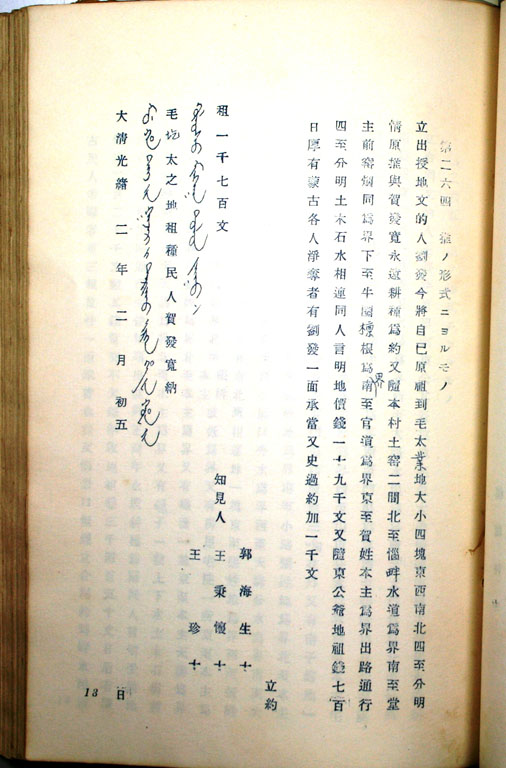 第二六四 推ノ形式ニヨルモノ
立出授地文的人劉發今將自已原租到毛太業地大小四塊東西南北四至分明
情原推與賀發寬永遠耕種爲約又隨本村土窰二間北至堖畔水道爲界南至堂
主前窰烟同爲界下至牛圈根爲界南至官道爲界東至賀姓本主爲界出路通行
四至分明土木石水相連同人言明地價錢一十九千文又隨東公爺地租錢七百
日厚有蒙古各人淨奪者有劉發一面承當又史過約加一千文
立約
郭海生十
知見人 王秉懷十
王珍十
租一千七百文
毛圪太之地租種民人賀發寬納
大清光緒二年二月初五日
13